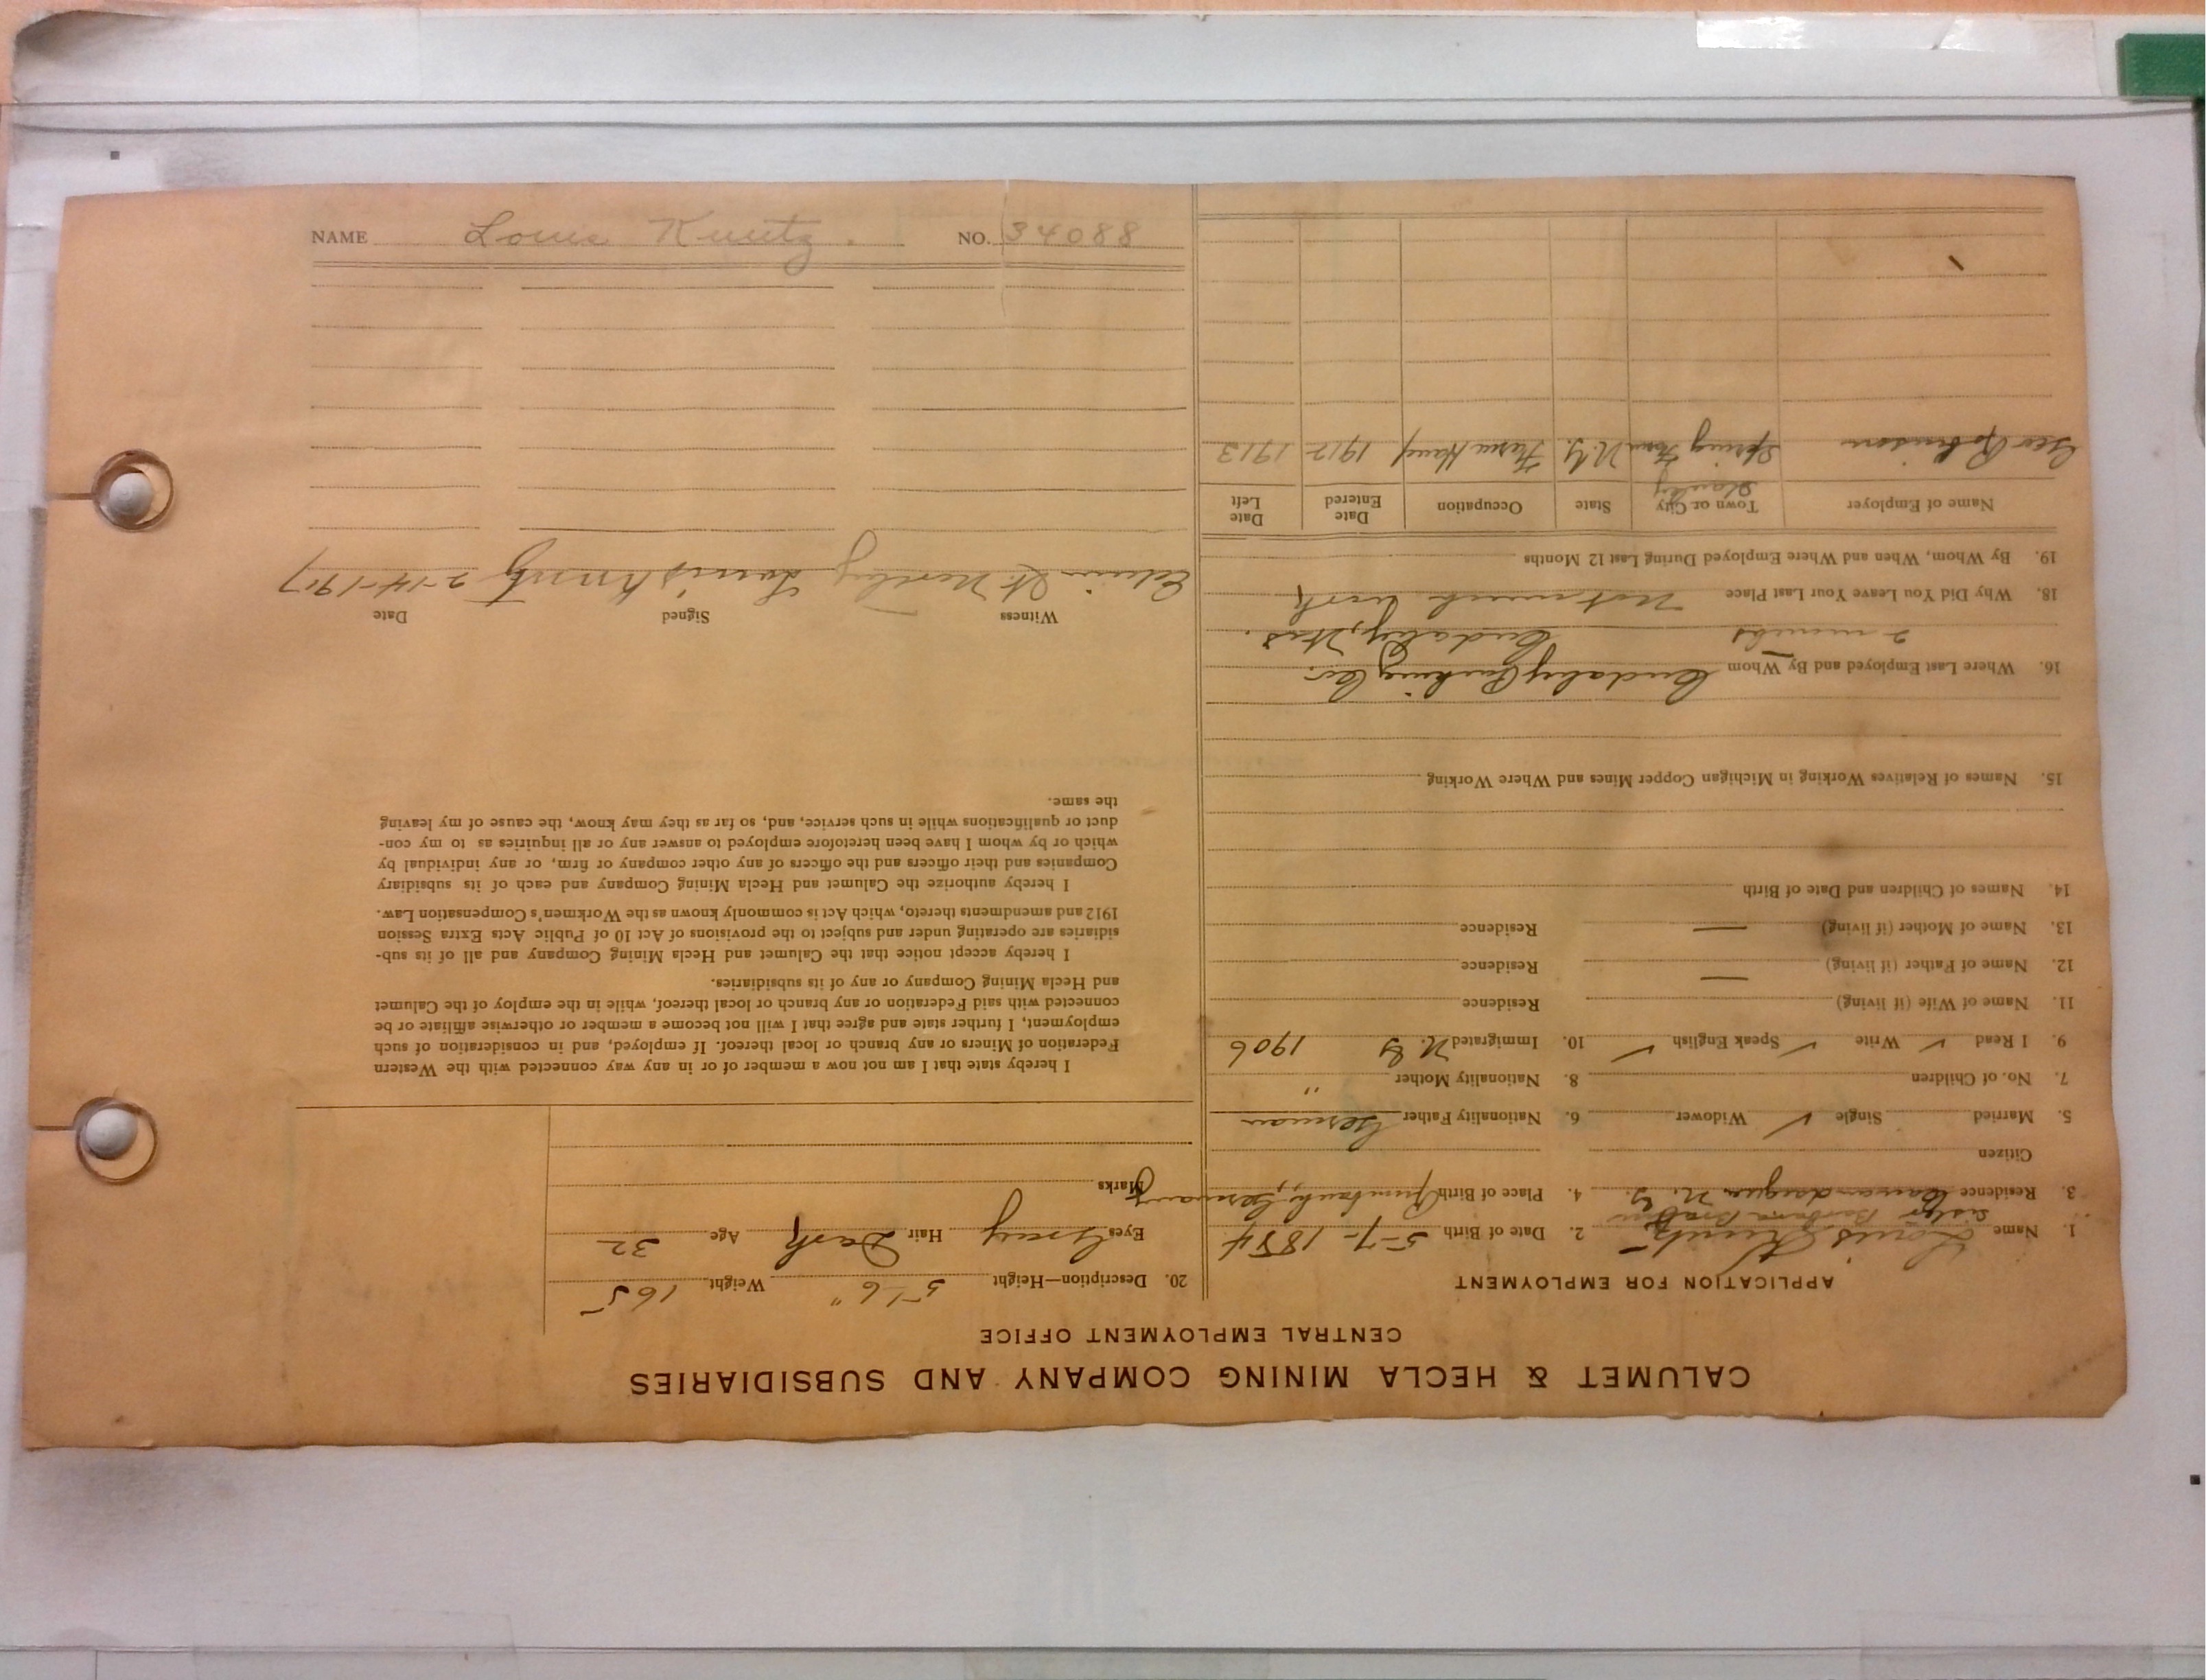 CALUMET & HECLA MINING COMPANY AND SUBSIDIARIES
CENTRAL EMPLOYMENT OFFICE
APPLICATION FOR EMPLOYMENT
1. Name Louis Kuntz 2. Date of Birth 5-7-1884
Sister Barbara
3. Residence Canandaigua N.Y. 4. Place of Birth Germany
Citizen
5. Married Single ✓ Widower 6. Nationality Father German
7. No. of Children 8. Nationality Mother "
9. I Read ✓ Write ✓ Speak English ✓ 10. Immigrated N.Y. 1906
11. Name of Wife (if living) Residence
12. Name of Father (if living) — Residence
13. Name of Mother (if living) — Residence
14. Names of Children and Date of Birth
15. Names of Relatives Working in Michigan Copper Mines and Where Working
16. Where Last Employed and By Whom Cudahy Packing Co.
2 months Cudahy, Wis.
18. Why Did You Leave Your Last Place Not much work
19. By Whom, When and Where Employed During Last 12 Months
Name of Employer Town or City State Occupation Date Entered Date Left
Geo Robinson Spring Farm N.Y. Farm Hand 1912 1913
20. Description—Height 5'6" Weight 165
Eyes Gray Hair Dark Age 32
Marks
I hereby state that I am not now a member of or in any way connected with the Western
Federation of Miners or any branch or local thereof. If employed, and in consideration of such
employment, I further state and agree that I will not become a member or otherwise affiliate or be
connected with said Federation or any branch or local thereof, while in the employ of the Calumet
and Hecla Mining Company or any of its subsidiaries.
I hereby accept notice that the Calumet and Hecla Mining Company and all of its sub-
sidiaries are operating under and subject to the provisions of Act 10 of Public Acts Extra Session
1912 and amendments thereto, which Act is commonly known as the Workmen's Compensation Law.
I hereby authorize the Calumet and Hecla Mining Company and each of its subsidiary
Companies and their officers and the officers of any other company or firm, or any individual by
which or by whom I have been heretofore employed to answer any or all inquiries as to my con-
duct or qualifications while in such service, and, so far as they may know, the cause of my leaving
the same.
Witness Signed Date
Edwin Louis Kuntz 2-14-1917
NAME Louis Kuntz. NO. 34088